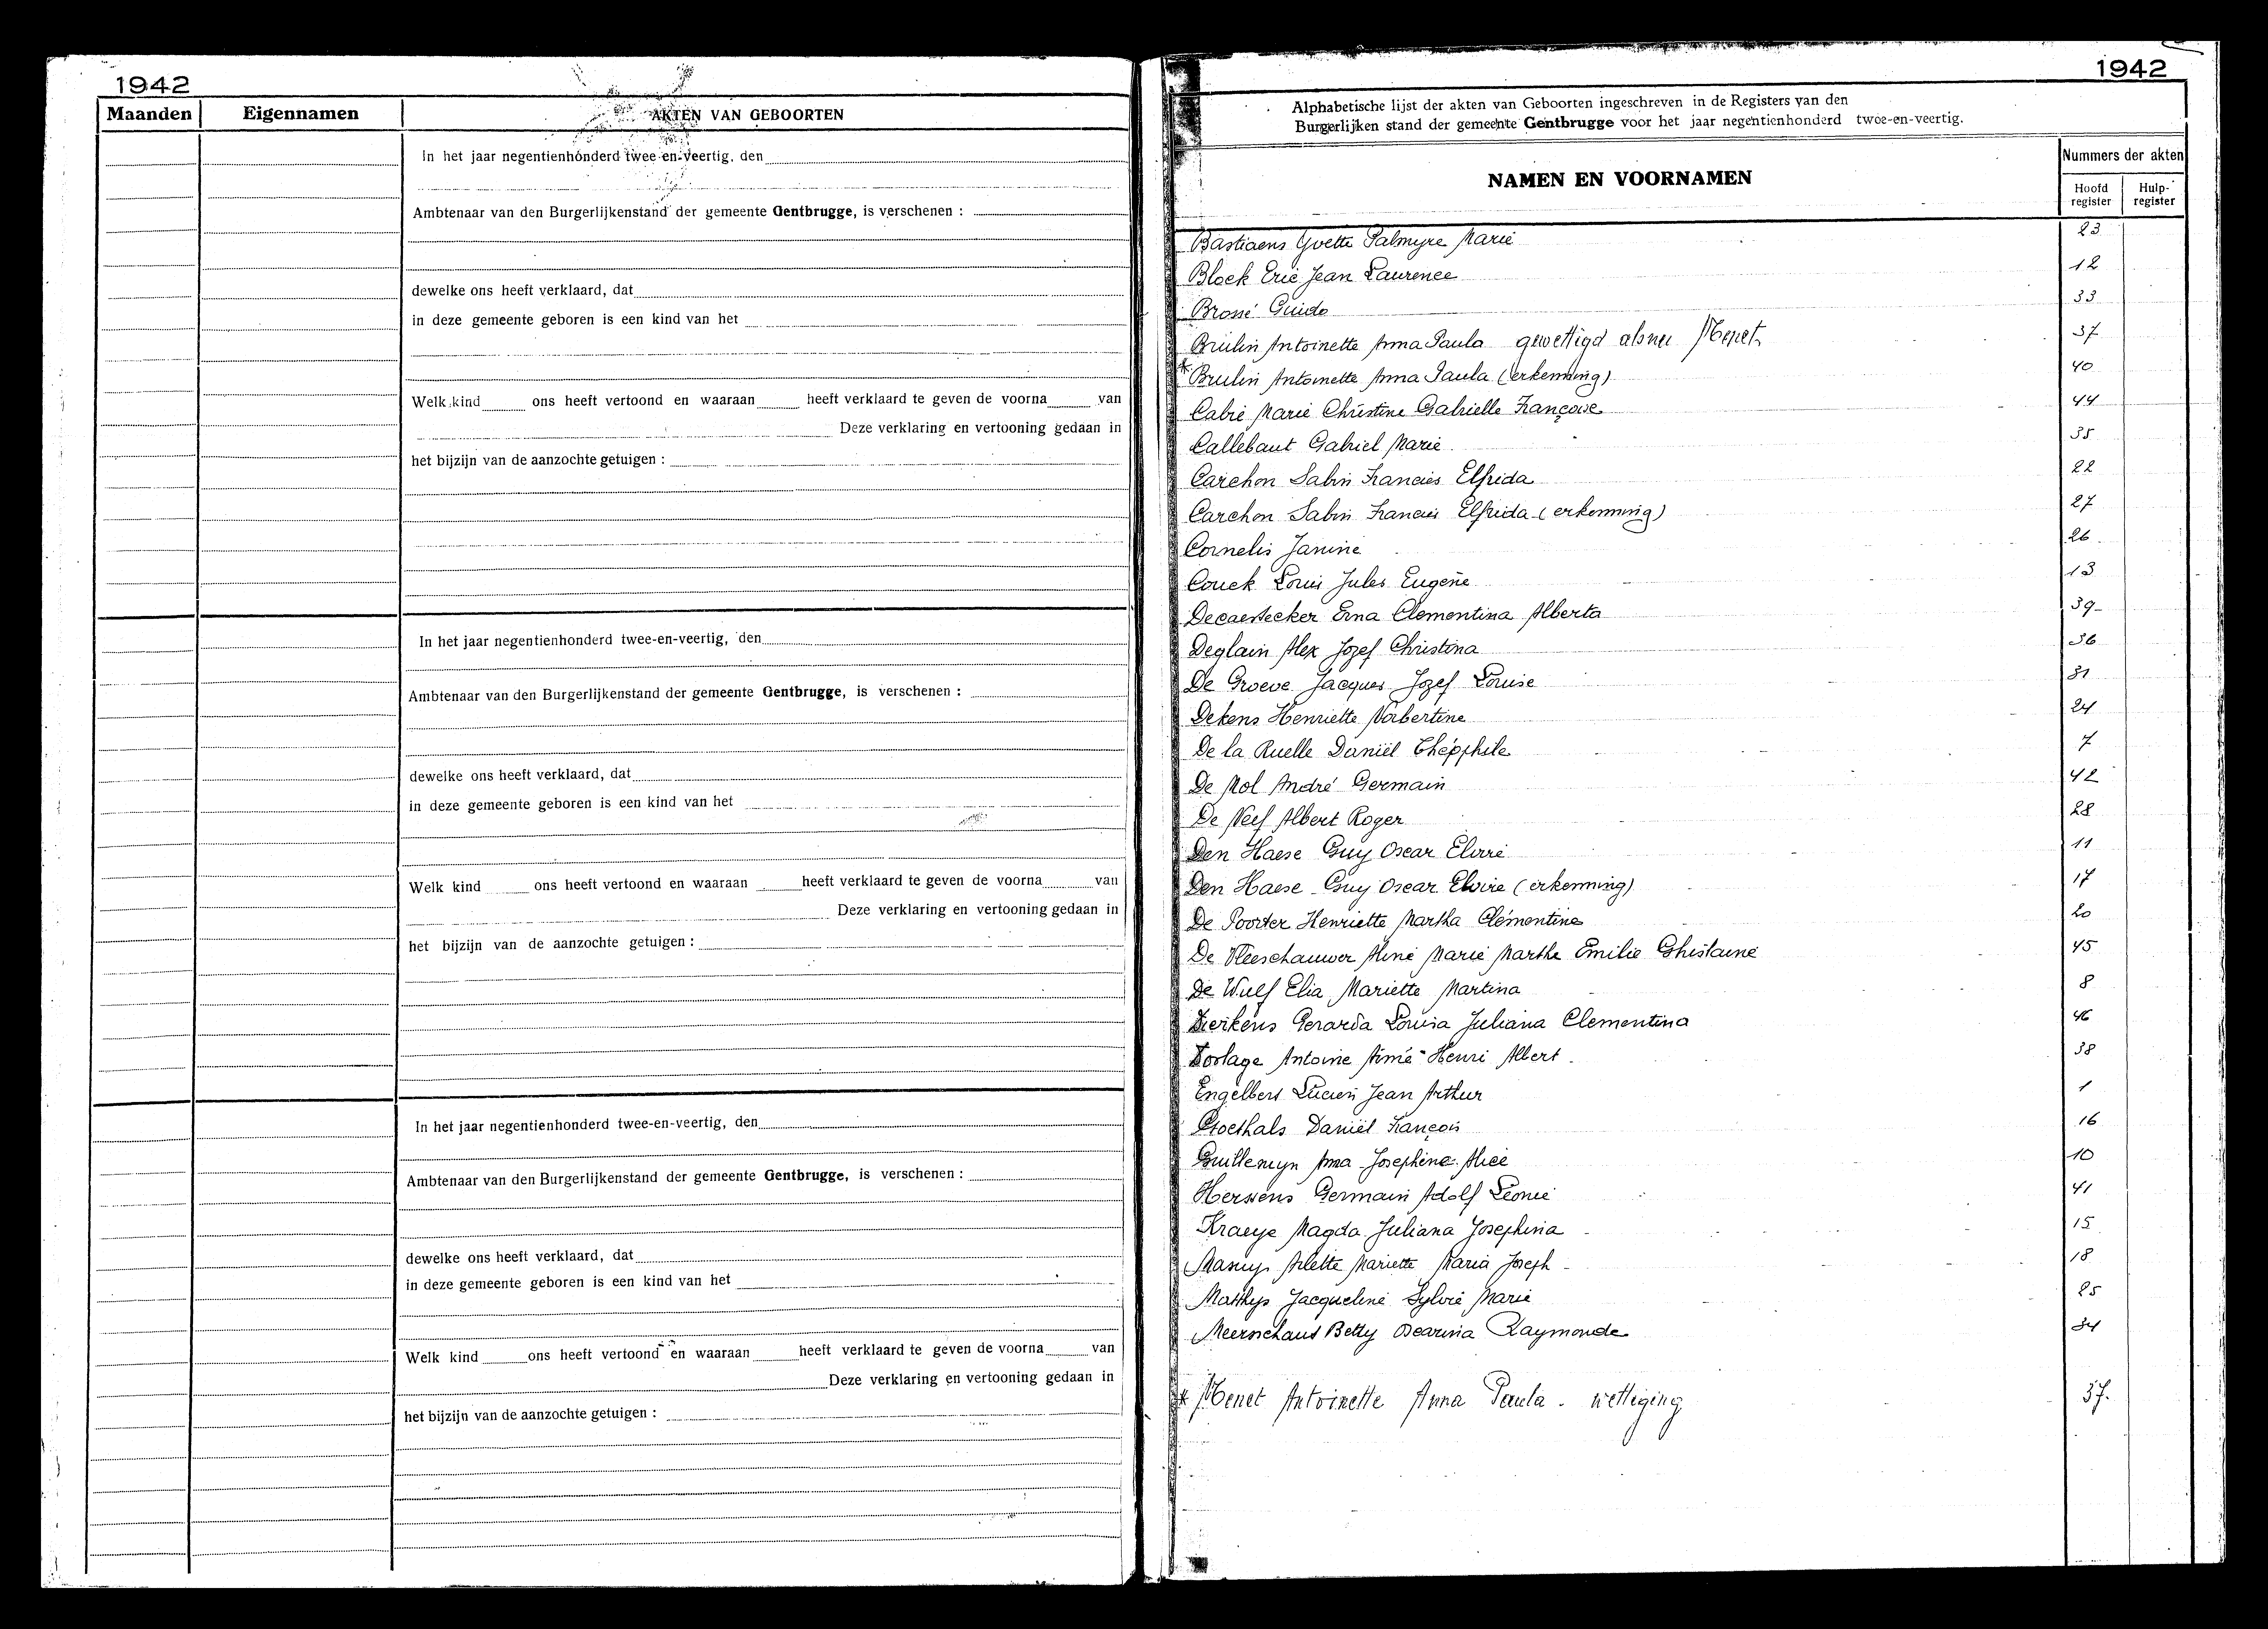 1942
Maanden Eigennamen AKTEN VAN GEBOORTEN
In het jaar negentienhonderd twee-en-veertig, den
Ambtenaar van den Burgerlijkenstand der gemeente Gentbrugge, is verschenen :
dewelke ons heeft verklaard, dat
in deze gemeente geboren is een kind van het
Welk kind ons heeft vertoond en waaraan heeft verklaard te geven de voorna van
Deze verklaring en vertooning gedaan in
het bijzijn van de aanzochte getuigen :
In het jaar negentienhonderd twee-en-veertig, den
Ambtenaar van den Burgerlijkenstand der gemeente Gentbrugge, is verschenen :
dewelke ons heeft verklaard, dat
in deze gemeente geboren is een kind van het
Welk kind ons heeft vertoond en waaraan heeft verklaard te geven de voorna van
Deze verklaring en vertooning gedaan in
het bijzijn van de aanzochte getuigen :
In het jaar negentienhonderd twee-en-veertig, den
Ambtenaar van den Burgerlijkenstand der gemeente Gentbrugge, is verschenen :
dewelke ons heeft verklaard, dat
in deze gemeente geboren is een kind van het
Welk kind ons heeft vertoond en waaraan heeft verklaard te geven de voorna van
Deze verklaring en vertooning gedaan in
het bijzijn van de aanzochte getuigen :
1942
Alphabetische lijst der akten van Geboorten ingeschreven in de Registers van den
Burgerlijken stand der gemeente Gentbrugge voor het jaar negentienhonderd twee-en-veertig.
NAMEN EN VOORNAMEN
Nummers der akten
Hoofd register
Hulp- register
Bastiaens Yvette Palmyre Marie 23
Block Eric Jean Laurence 12
Brossé Guido 33
Brulin Antoinette Anna Paula gewettigd als Menet 37
* Brulin Antoinette Anna Paula (erkenning) 40
Cabie Marie Christine Gabrielle Françoise 44
Callebaut Gabriel Marie 35
Carchon Sabin Francies Elfrida 22
Carchon Sabin Francies Elfrida (erkenning) 27
Cornelis Janine 26
Couck Louis Jules Eugene 13
Decaestecker Erna Clementina Alberta 39
Deglain Alex Jozef Christina 36
De Groeve Jacques Jozef Louise 31
Dekens Henriette Norbertine 24
De la Ruelle Daniël Théophile 7
De Mol André Germain 42
De Neef Albert Roger 28
Den Haese Guy Oscar Elvire 11
Den Haese Guy Oscar Elvire (erkenning) 17
De Poorter Henriette Martha Clémentine 20
De Vleeschauwer Aline Marie Marthe Emilie Ghislaine 45
De Wulf Elia Mariette Martina 8
Dierkens Gerarda Louisa Juliana Clementina 46
Dorlage Antoine Aimé Henri Albert 38
Engelbert Lucien Jean Arthur 1
Goethals Daniël François 16
Guillemyn Anna Josephine Alice 10
Herssens Germain Adolf Leonie 41
Kraeye Magda Juliana Josephina 15
Arlette Mariette Maria Joseph 18
Matthys Jacqueline Sylvie Marie 25
Meerschaut Betty Oscarina Raymonde 34
* Menet Antoinette Anna Paula - wettiging 37.